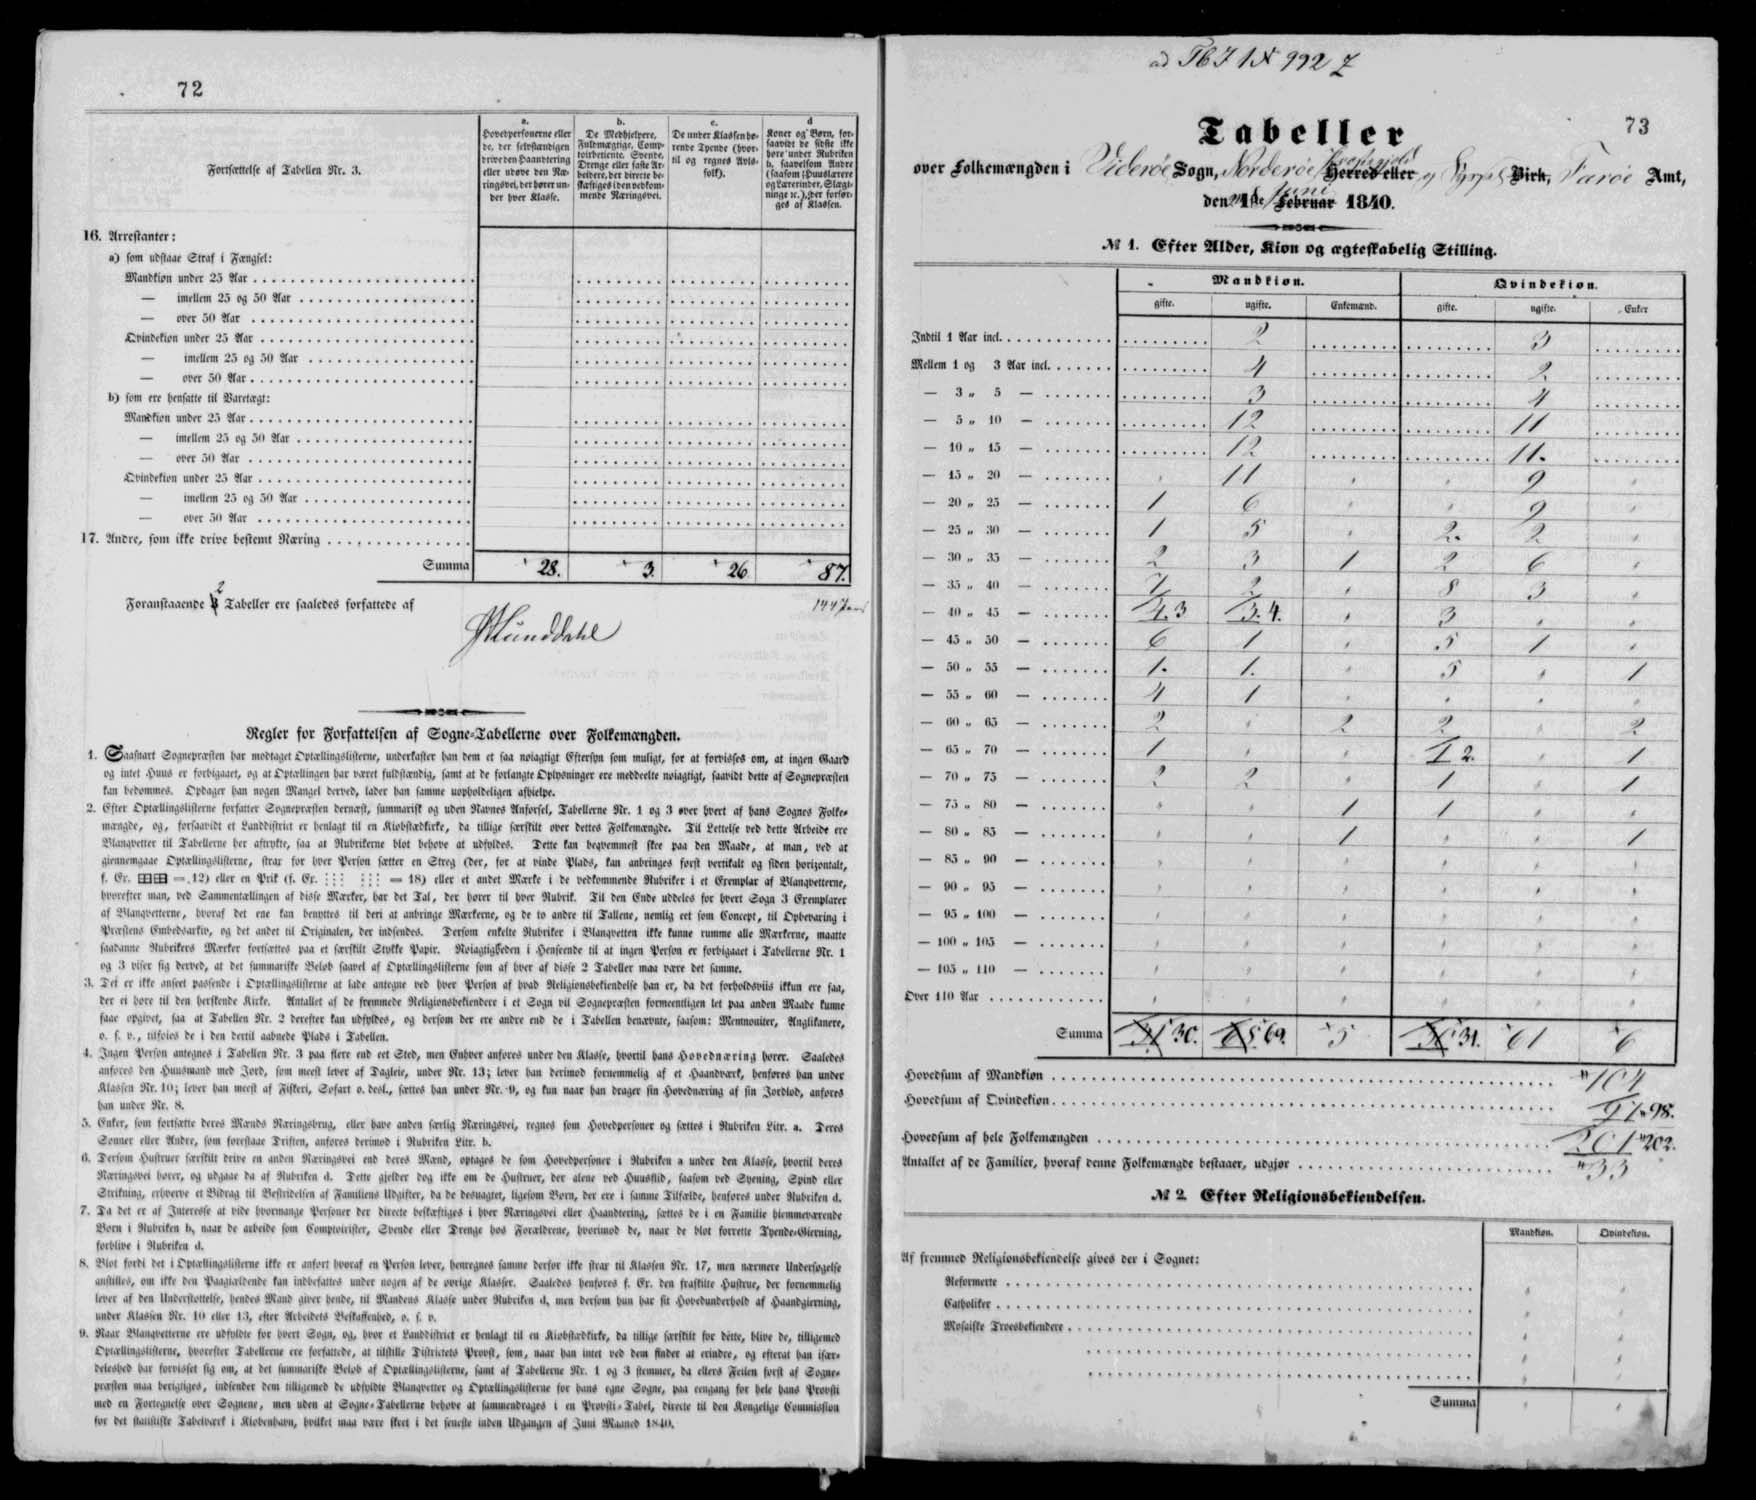 72
Fortsættelse af Tabellen Nr. 3.
a.
Hovedpersonerne eller de, der selvstændigen drive den Haandtering eller udøve den Næringsvei, der hører under hver Klasse.
b.
De Medhjelpere, Fuldmægtige, Comptoirbetiente, Svende, Drenge eller faste Arbeidere, der directe beskæftiges i den vedkommende Næringsvei.
c.
De under Klassen hørende Tyende (hvortil og regnes Avlsfolk).
d
Koner og Børn, forsaavidt de sidste ikke høre under Rubriken b, saavelsom Andre (saasom Huuslærere og Lærerinder, Slægtninge ec.), der forsørges af Klassen.
16. Arrestanter:
a) som udstaae Straf i Fængsel:
Mandkiøn under 25 Aar
— imellem 25 og 50 Aar
— over 50 Aar
Qvindekiøn under 25 Aar
— imellem 25 og 50 Aar
— over 50 Aar
b) som ere hensatte til Varetægt:
Mandkiøn under 25 Aar
— imellem 25 og 50 Aar
— over 50 Aar
Qvindekiøn under 25 Aar
— imellem 25 og 50 Aar
— over 50 Aar
17. Andre, som ikke drive bestemt Næring
Summa 28. 3. 26 87.
2
Foranstaaende 3 Tabeller ere saaledes forfattede af
Regler for Forfattelsen af Sogne-Tabellerne over Folkemængden.
1. Saasnart Sognepræsten har modtaget Optællingslisterne, underkaster han dem et saa nøiagtigt Eftersyn som muligt, for at forvisses om, at ingen Gaard
og intet Huus er forbigaaet, og at Optællingen har været fuldstændig, samt at de forlangte Oplysninger ere meddeelte nøiagtigt, saavidt dette af Sognepræsten
kan bedømmes. Opdager han nogen Mangel derved, lader han samme uopholdeligen afhielpe.
2. Efter Optællingslisterne forfatter Sognepræsten dernæst, summarisk og uden Navnes Anførsel, Tabellerne Nr. 1 og 3 over hvert af hans Sognes Folke-
mængde, og, forsaavidt et Landdistrict er henlagt til en Kiøbstædkirke, da tillige særskilt over dettes Folkemængde. Til Lettelse ved dette Arbeide ere
Blanqvetter til Tabellerne her aftrykte, saa at Rubrikerne blot behøve at udfyldes. Dette kan beqvemmest skee paa den Maade, at man, ved at
giennemgaae Optællingslisterne, strax for hver Person sætter en Streg (der, for at vinde Plads, kan anbringes først vertikalt og siden horizontalt,
f. Ex. = 12) eller en Prik (f. Ex. = 18) eller et andet Mærke i de vedkommende Rubriker i et Exemplar af Blanqvetterne,
hvorefter man, ved Sammentællingen af disse Mærker, har det Tal, der hører til hver Rubrik. Til den Ende uddeles for hvert Sogn 3 Exemplarer
af Blanqvetterne, hvoraf det ene kan benyttes til deri at anbringe Mærkerne, og de to andre til Tallene, nemlig eet som Concept, til Opbevaring i
Præstens Embedsarkiv, og det andet til Originalen, der indsendes. Dersom enkelte Rubriker i Blanqvetten ikke kunne rumme alle Mærkerne, maatte
saadanne Rubrikers Mærker fortsættes paa et særskilt Stykke Papir. Nøiagtigheden i Henseende til at ingen Person er forbigaaet i Tabellerne Nr. 1
og 3 viser sig derved, at det summariske Beløb saavel af Optællingslisterne som af hver af disse 2 Tabeller maa være det samme.
3. Det er ikke anseet passende i Optællingslisterne at lade antegne ved hver Person af hvad Religionsbekiendelse han er, da det forholdsviis ikkun ere faa,
der ei høre til den herskende Kirke. Antallet af de fremmede Religionsbekiendere i et Sogn vil Sognepræsten formeentligen let paa anden Maade kunne
faae opgivet, saa at Tabellen Nr. 2 derefter kan udfyldes, og dersom der ere andre end de i Tabellen benævnte, saasom: Memnoniter, Anglikanere,
o. s. v., tilføies de i den dertil aabnede Plads i Tabellen.
4. Ingen Person antegnes i Tabellen Nr. 3 paa flere end eet Sted, men Enhver anføres under den Klasse, hvortil hans Hovednæring hører. Saaledes
anføres den Huusmand med Jord, som meest lever af Dagleie, under Nr. 13; lever han derimod fornemmelig af et Haandværk, henføres han under
Klassen Nr. 10; lever han meest af Fiskeri, Søfart o. desl., sættes han under Nr. 9, og kun naar han drager sin Hovednæring af sin Jordlod, anføres
han under Nr. 8.
5. Enker, som fortsætte deres Mænds Næringsbrug, eller have anden særlig Næringsvei, regnes som Hovedpersoner og sættes i Rubriken Litr. a. Deres
Sønner eller Andre, som forestaae Driften, anføres derimod i Rubriken Litr. b.
6. Dersom Hustruer særskilt drive en anden Næringsvei end deres Mænd, optages de som Hovedpersoner i Rubriken a under den Klasse, hvortil deres
Næringsvei hører, og udgaae da af Rubriken d. Dette gielder dog ikke om de Hustruer, der alene ved Huusflid, saasom ved Syening, Spind eller
Strikning, erhverve et Bidrag til Bestridelsen af Familiens Udgifter, da de desuagtet, ligesom Børn, der ere i samme Tilfælde, henføres under Rubriken d.
7. Da det er af Interesse at vide hvormange Personer der directe beskæftiges i hver Næringsvei eller Haandtering, sættes de i en Familie hiemmeværende
Børn i Rubriken b, naar de arbeide som Comptoirister, Svende eller Drenge hos Forældrene, hvorimod de, naar de blot forrette Tyende-Gierning,
forblive i Rubriken d.
8. Blot fordi det i Optællingslisterne ikke er anført hvoraf en Person lever, henregnes samme derfor ikke strax til Klassen Nr. 17, men nærmere Undersøgelse
anstilles, om ikke den Paagieldende kan indbefattes under nogen af de øvrige Klasser. Saaledes henføres f. Ex. den fraskilte Hustrue, der fornemmelig
lever af den Understøttelse, hendes Mand giver hende, til Mandens Klasse under Rubriken d, men dersom hun har sit Hovedunderhold af Haandgierning,
under Klassen Nr. 10 eller 13, efter Arbeidets Beskaffenhed, o. s. v.
9. Naar Blanqvetterne ere udfyldte for hvert Sogn, og, hvor et Landdistrict er henlagt til en Kiøbstædkirke, da tillige særskilt for dette, blive de, tilligemed
Optællingslisterne, hvorefter Tabellerne ere forfattede, at tilstille Districtets Provst, som, naar han intet ved dem finder at erindre, og efterat han især-
deleshed har forvisset sig om, at det summariske Beløb af Optællingslisterne, samt af Tabellerne Nr. 1 og 3 stemmer, da ellers Feilen først af Sogne-
præsten maa berigtiges, indsender dem tilligemed de udfyldte Blanqvetter og Optællingslisterne for hans egne Sogne, paa eengang for hele hans Provsti
med en Fortegnelse over Sognene, men uden at Sogne-Tabellerne behøve at sammendrages i en Provsti-Tabel, directe til den Kongelige Commission
for det statistiske Tabelværk i Kiøbenhavn, hvilket maa være skeet i det seneste inden Udgangen af Juni Maaned 1840.
73
Tabeller
over Folkemængden i Viderøe Sogn, Norderøe Herred eller og Syssel Birk, Færøe Amt,
Juni
den 1ste Februar 1840.
№ 1. Efter Alder, Kiøn og ægteskabelig Stilling.
Mandkiøn. Qvindekiøn.
gifte. ugifte. Enkemænd. gifte. ugifte. Enker
Indtil 1 Aar incl. 2 3
Mellem 1 og 3 Aar incl. 4 2
— 3 „ 5 — 3 4
— 5 „ 10 — 12 11
— 10 „ 15 — 12 11.
— 15 „ 20 — 11 9
— 20 „ 25 — 1 6 9
— 25 „ 30 — 1 5 2. 2
— 30 „ 35 — 2 3 1 2 6
— 35 „ 40 — 7 2 8 3
— 40 „ 45 — 4. 3 3. 4. 3
— 45 „ 50 — 6 1 5 1
— 50 „ 55 — 1. 1. 5 1
— 55 „ 60 — 4 1
— 60 „ 65 — 2 2 2 2
— 65 „ 70 — 1 1 2. 1
— 70 „ 75 — 2 2 1 1
— 75 „ 80 — 1 1
— 80 „ 85 — 1 1
— 85 „ 90 —
— 90 „ 95 —
— 95 „ 100 —
— 100 „ 105 —
— 105 „ 110 —
Over 110 Aar
Summa 31 30. 68 69. 5 30 31. 61 6
Hovedsum af Mandkiøn 104
Hovedsum af Qvindekiøn 97 98.
Hovedsum af hele Folkemængden 201 202.
Antallet af de Familier, hvoraf denne Folkemængde bestaaer, udgjør 33
№ 2. Efter Religionsbekiendelsen.
Mandkiøn. Qvindekiøn.
Af fremmed Religionsbekiendelse gives der i Sognet:
Reformerte
Catholiker
Mosaiske Troesbekiendere
Summa